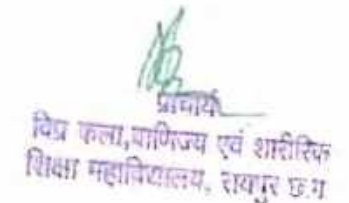 प्राचार्य
विप्र कला,वाणिज्य एवं शारीरिक
शिक्षा महाविद्यालय, रायपुर छ.ग